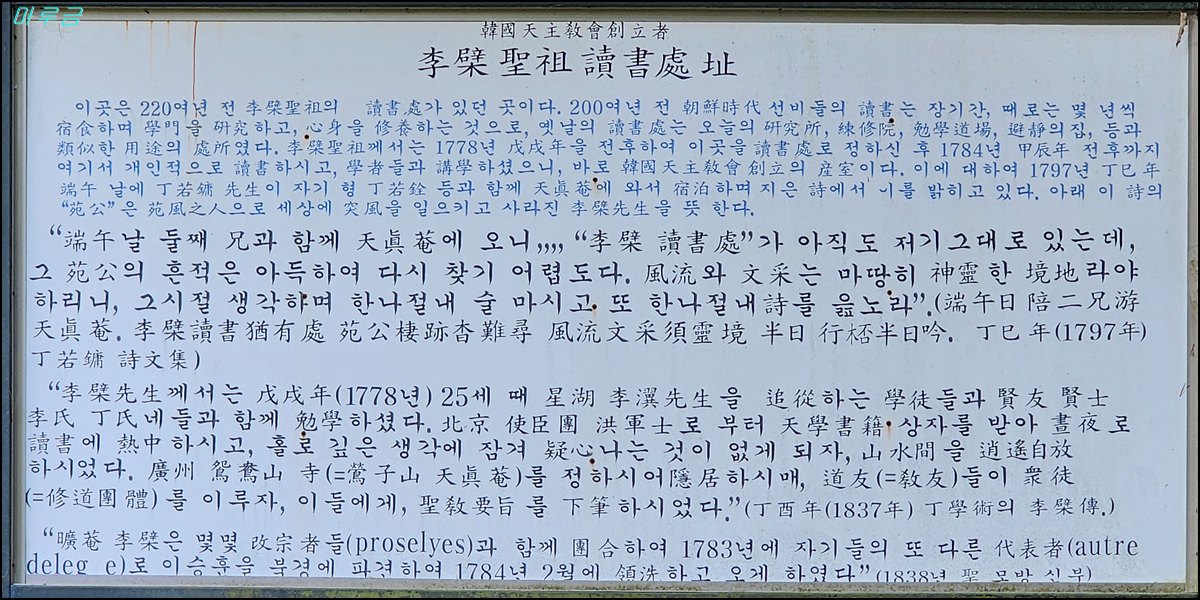 마루금
韓國天主敎會創立者
李檗聖祖讀書處址
이곳은 220여년 전 李檗聖祖의 讀書處가 있던 곳이다. 200여년 전 朝鮮時代 선비들의 讀書는 장기간, 때로는 몇 년씩
宿食하며 學門을 硏究하고, 心身을 修養하는 것으로, 옛날의 讀書處는 오늘의 硏究所, 練修院, 勉學道場, 避靜의집, 등과
類似한 用途의 處所였다. 李檗聖祖께서는 1778년 戊戌年을 전후하여 이곳을讀書處로 정하신 후 1784년 甲辰年 전후까지
여기서 개인적으로 讀書하시고, 學者들과 講學하셨으니, 바로 韓國天主敎會 創立의 産室이다. 이에 대하여 1797년 丁巳年
端午 날에 丁若鏞 先生이 자기 형 丁若銓 등과 함께 天眞菴에 와서 宿泊하며 지은 詩에서 이를 밝히고 있다. 아래 이 詩의
“苑公”은 苑風之人으로 세상에 突風을 일으키고 사라진 李檗先生을 뜻 한다.
“端午날 둘째 兄과 함께 天眞菴에 오니,,,, “李檗 讀書處”가 아직도 저기그대로 있는데,
그 苑公의 흔적은 아득하여 다시 찾기 어렵도다. 風流와 文采는 마땅히 神靈한 境地라야
하리니, 그시절 생각하며 한나절내 술 마시고 또 한나절내詩를 읊노라”.(端午日陪二兄游
天眞菴. 李檗讀書猶有處 苑公棲跡杳難尋 風流文采須靈境 半日行桮半日吟. 丁巳年(1797年)
丁若鏞 詩文集)
“李檗先生께서는 戊戌年(1778년) 25세 때 星湖 李瀷先生을 追從하는 學徒들과 賢友 賢士
李氏 丁氏네들과 함께 勉學하셨다. 北京 使臣團 洪軍士로 부터 天學書籍 상자를 받아 晝夜로
讀書에 熱中하시고, 홀로 깊은 생각에 잠겨 疑心나는 것이 없게 되자, 山水間을 逍遙自放
하시었다. 廣州 鴛鴦山 寺(=鶯子山 天眞菴)를 정하시어隱居하시매, 道友(=敎友)들이 衆徒
(=修道團體)를 이루자, 이들에게, 聖敎要旨를 下筆하시었다.”(丁酉年(1837年) 丁學術의 李檗傳.)
“曠菴 李檗은 몇몇 改宗者들(proselyes)과 함께 團合하여 1783년에 자기들의 또 다른 代表者(autre
deleg e)로 이승훈을 북경에 파견하여 1784년 2월에 領洗하고 오게 하였다”(1838년 聖 모방 신부)